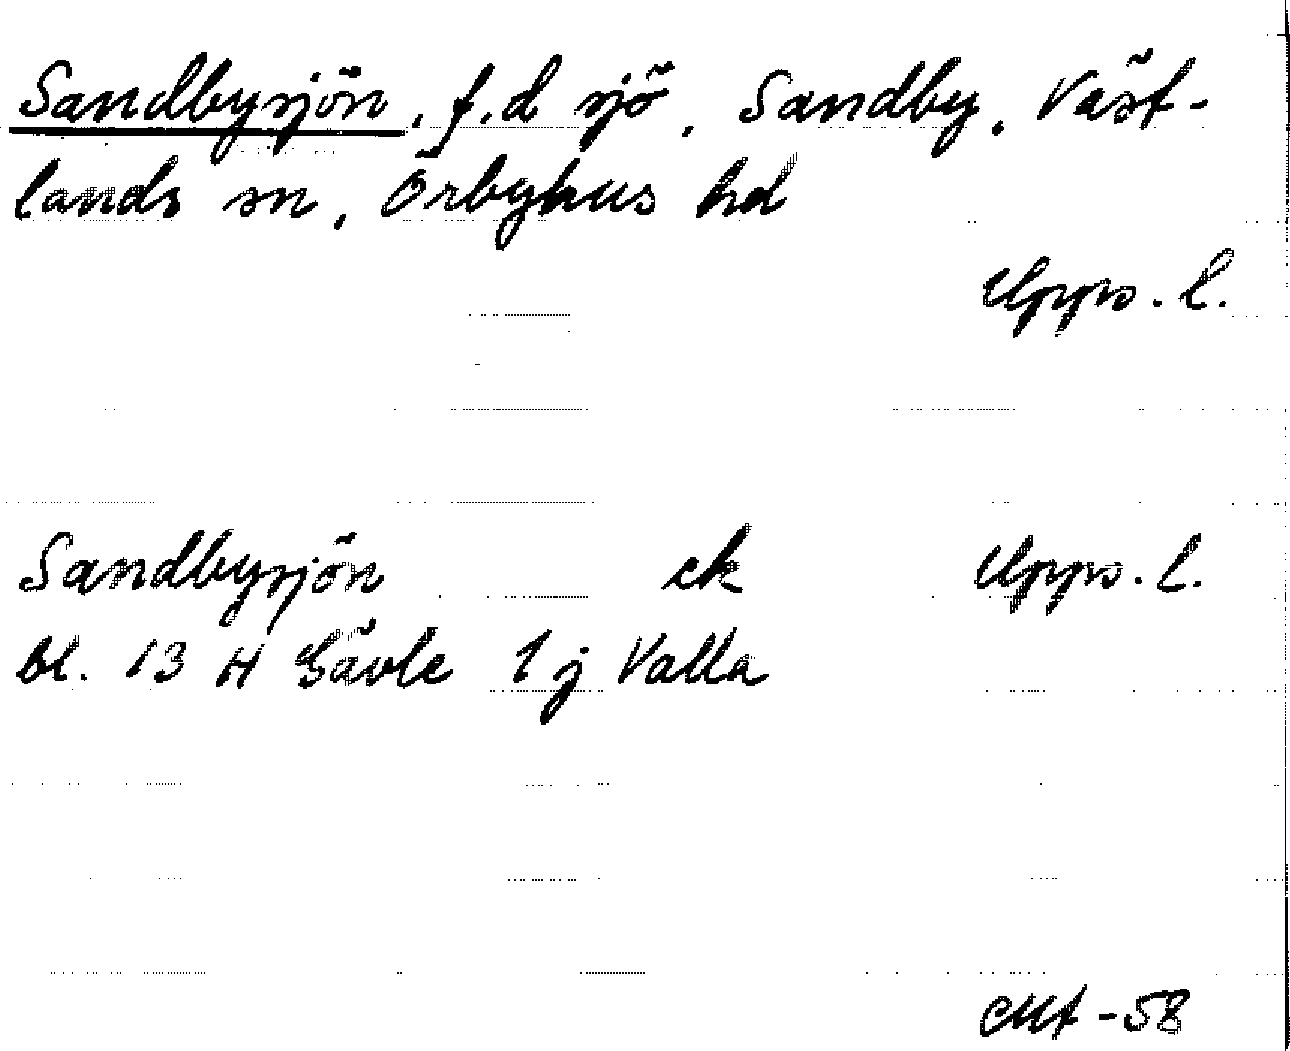 Sandbysjön, f.d sjö, Sandby, Väst-
lands sn, Örbyhus hd
Upps. l.
Sandbysjön ek Upps. l.
bl. 13 H Gävle 1 j Valla
-58